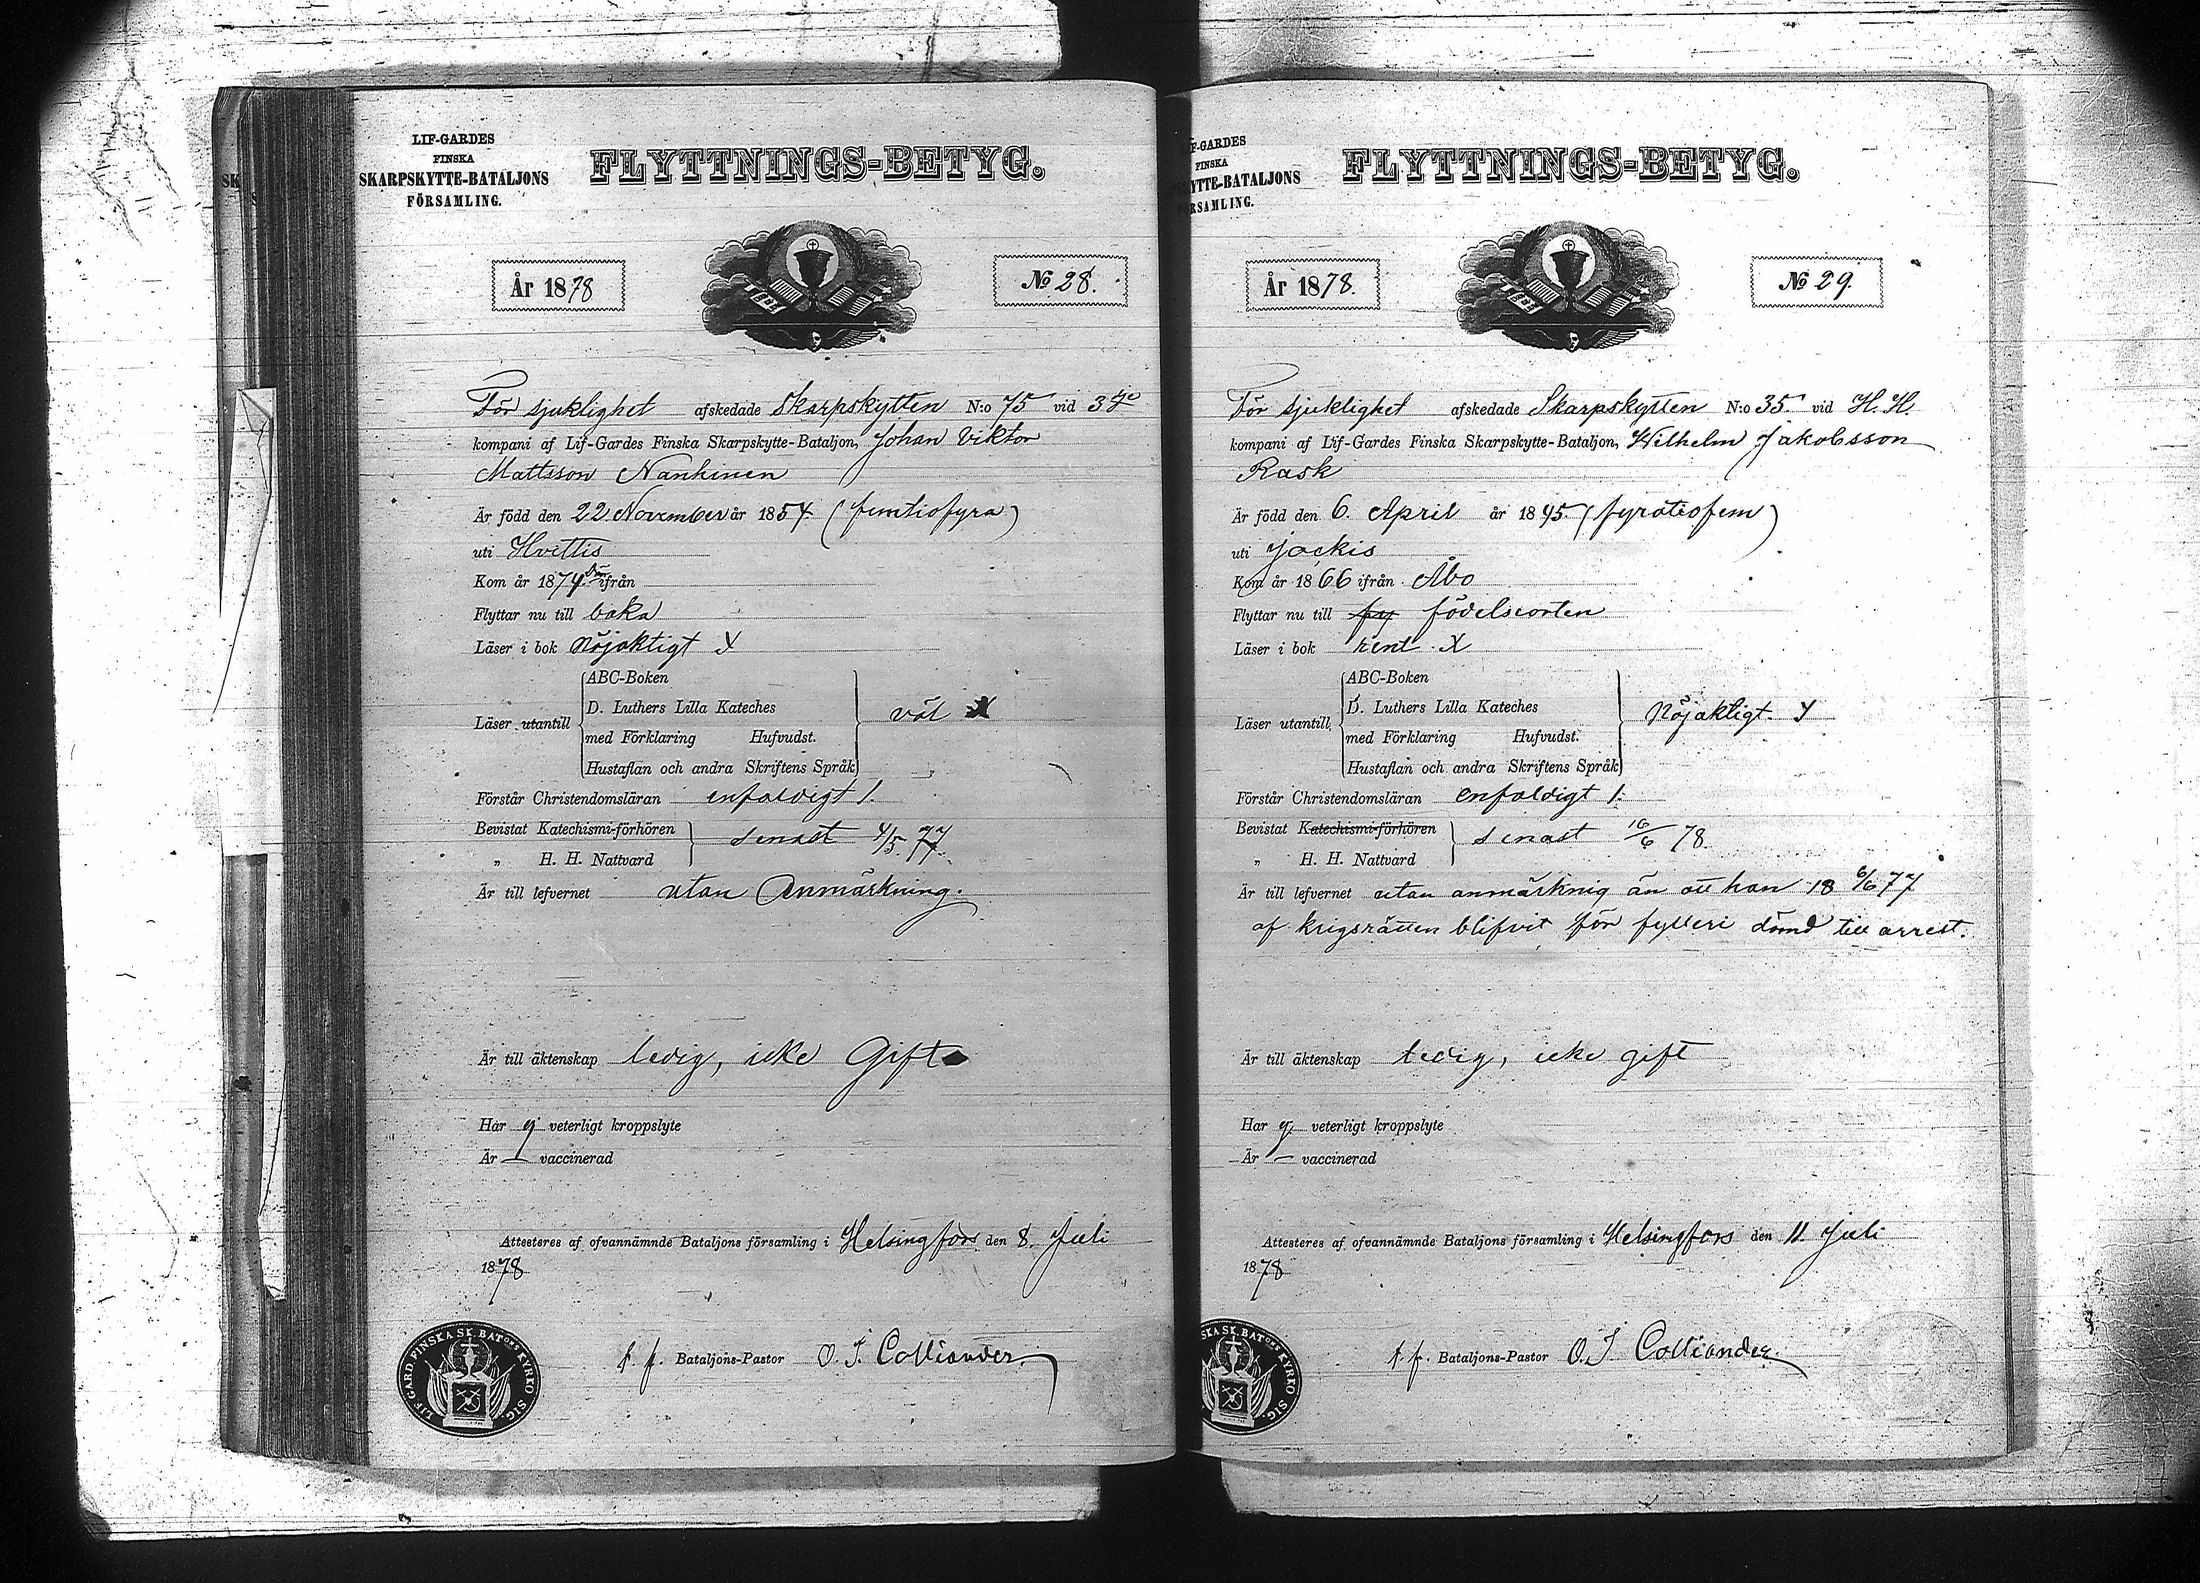 LIF-GARDES
FINSKA
SKARPSKYTTE-BATALJONS
FÖRSAMLING.
FLYTTNINGS-BETYG.
År 1878
No 28.
För sjuklighet afskedade Skarpskytten N:o 75 vid 3je
kompani af Lif-Gardes Finska Skarpskytte-Bataljon, Johan Viktor
Mattsson Nankinen
Är född den 22 November år 1854 (femtiofyra)
uti Hvittis
Kom år 1874 ifrån
Flyttar nu till
Läser i bok Nöjaktigt
ABC-Boken
D. Luthers Lilla Kateches
Läser utantill väl
med Förklaring Hufvudst.
Hustaflan och andra Skriftens Språk
Förstår Christendomsläran enfaldigt 1.
Bevistat Katechismi-förhören
senast 4/5 77.
" H. H. Nattvard
Är till lefvernet utan Anmärkning.
Är till äktenskap ledig, icke Gift
Har g veterligt kroppslyte
Är — vaccinerad
Attesteres af ofvannämnde Bataljons församling i Helsingfors den 8. Juli
1878
t. f. Bataljons-Pastor O. I. Colliander.
LIF. GARD. FINSKA SK. BATONS KYRKO SIG.
F-GARDES
FINSKA
YTTE-BATALJONS
RSAMLING.
FLYTTNINGS-BETYG.
År 1878.
No 29.
För sjuklighet afskedade Skarpskytten N:o 35 vid H. H.
kompani af Lif-Gardes Finska Skarpskytte-Bataljon, Wilhelm Jakobsson
Rask
Är född den 6. April år 1845 (fyratiofem)
uti Jockis
Kom år 1866 ifrån Åbo
Flyttar nu till fy födelseorten
Läser i bok rent. X
ABC-Boken
D. Luthers Lilla Kateches
Läser utantill Nöjaktigt.
med Förklaring Hufvudst.
Hustaflan och andra Skriftens Språk
Förstår Christendomsläran enfaldigt 1.
Bevistat Katechismi-förhören
senast 16/6 78.
" H. H. Nattvard
Är till lefvernet utan anmärknig än att han 18 6/6 77
af krigsrätten blifvit för fylleri dömd till arrest.
Är till äktenskap ledig, icke gift
Har g. veterligt kroppslyte
Är — vaccinerad
Attesteres af ofvannämnde Bataljons församling i Helsingfors den 11 Juli
1878
t. f. Bataljons-Pastor O. I Colliander.
SKA SK. BATONS KYRKO SIG.